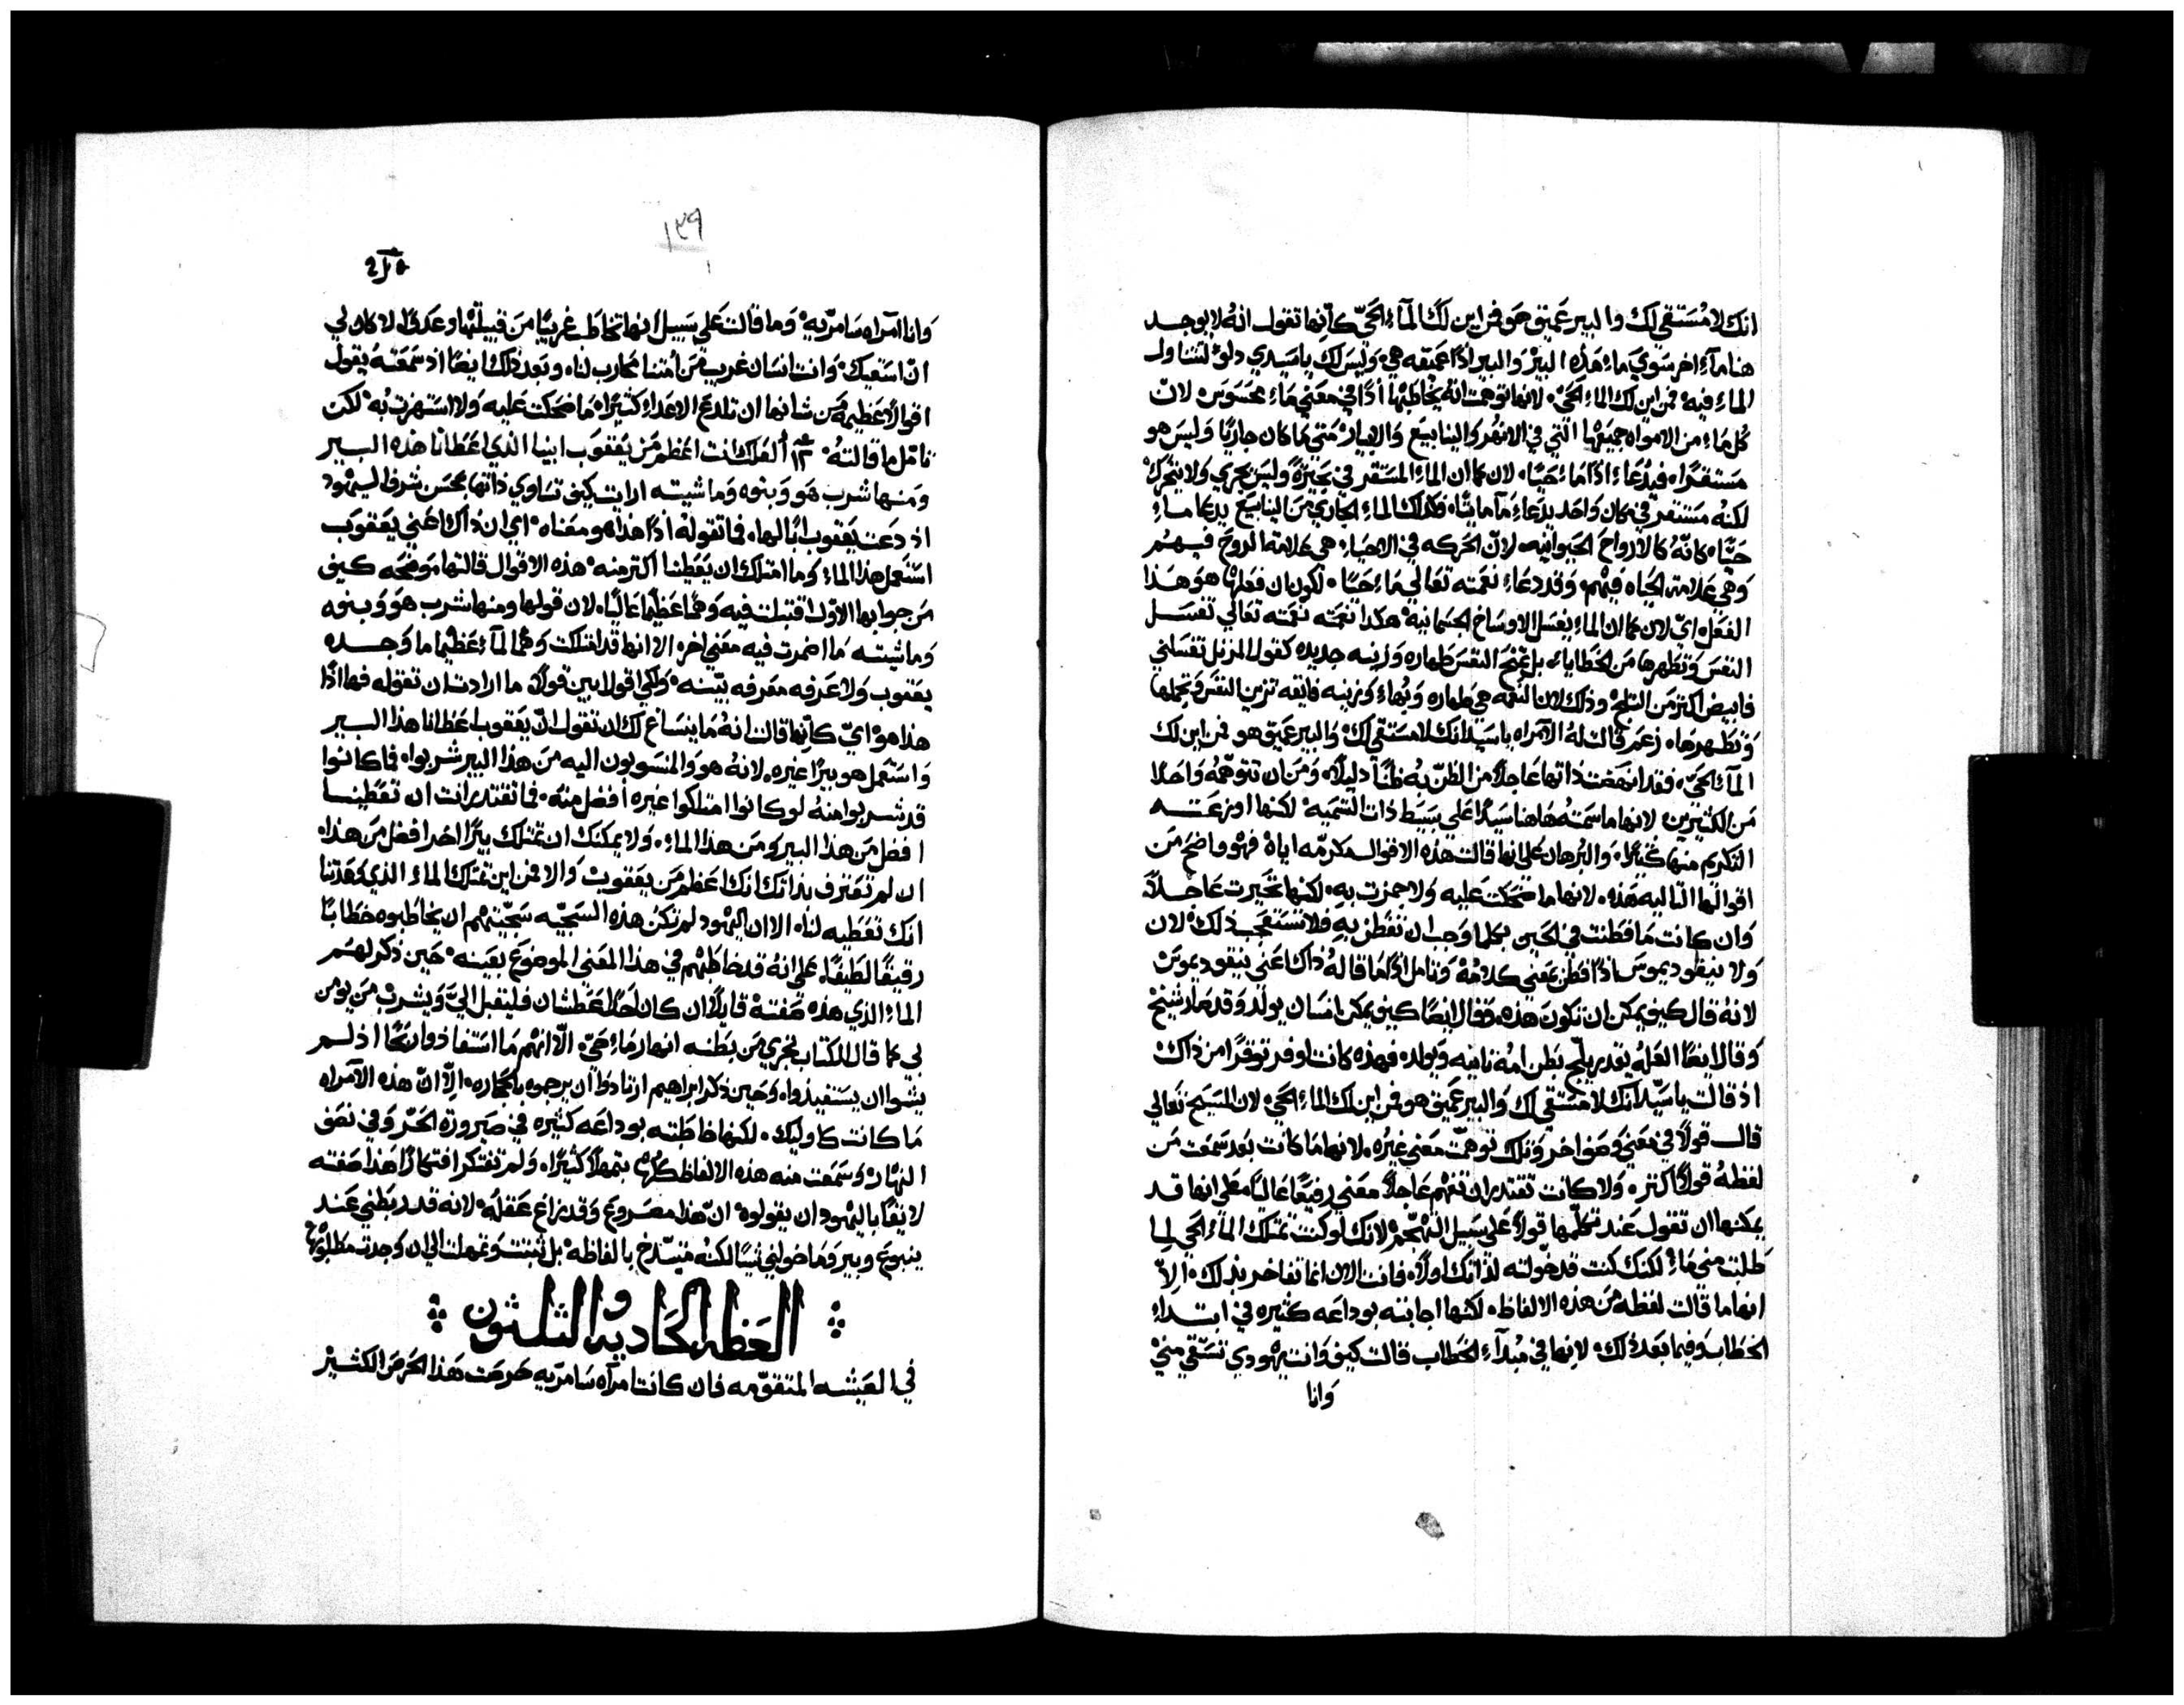 انك لا مُستقي لك والبير عميق هو فمن اين لك المآء الحيّ كانها تقول انهُ لا يوجد
هنا مآء اخر سوي ماء هذه البير والبير اذًا عميقه هي وليس لك ياسيدي دلو لتتناول
الماء فيه فمن اين لك الماء الحي لانها توهمت انهُ يخاطبها اذًا في معني ماء محسوس لان
كُل ماء من الامواه جميعها التي في الانهر والينابيع والابيار متي ما كان جاريًا وليس هو
مستقرًا فيُدعاء اذًا ماء حيًا لان كما ان الماء المستقر في بحيرةً وليس يجري ولا يتحرك
لكنهُ مستقر في مكان واحد يدعاء مآ مايتًا فكذلك الماء الجاري من الينابيع يدعا ماء
حيًا كانهُ كالارواح الحيوانيه لانّ الحركه في الاحياء هي علامة الروح فيهم
وهي علامة الحياه فيهم وقد دعاء نعمته تعالي ماء حيًا لكون ان فعلها هو هذا
الفعل ايّ لان كما ان الماء يغسل الاوساخ الجسمانيه هكذا نعمته نعمته تعالي تغسل
النفس وتطهرها من الخطايا بل تمنح النفس طهاره وزينه جديده كقول المزمل تغسلني
فابيض اكتر من التلج وذلك لان النعمه هي طهاره وبُهاء وزينه فايقه تزين النفس وتجملها
وتطهرها زعم قالت لهُ الامراه ياسيد انك لا مستقي لك والبير عميق هو فمن اين لك
المآء الحيّ فقد انهضت ذاتها عاجلاً من الظنّ به ظنًا دليلاً ومن ان تتوهمهُ واحدًا
من الكتيرين لانها ما سمتهُ هاهنا سيدًا علي بسيط ذات التسميه لكنها اوزعته
التكريم منها كثيرًا والبُرهان علي انها قالت هذه الاقوال مكرمّه اياهُ فهو واضح من
اقوالها التاليه هذه لانها ما ضحكت عليه ولا جمزت به لكنها تحيرت عاجلاً
وان كانت ما فطنت في الحين بكلما وجب ان تفطن به فلا تستعجب ذلك لان
ولا نيقوديموس اذًا فطن بمعني كلامهُ وتامل اذًا ما قالهُ ذاك اعني نيقوديموس
لانهُ قال كيف يمكن ان تكون هذه وقال ايضًا كيف يمكن انسان يولد وقد صار شيخ
وقال ايضًا العلهُ يقدر يلج بطن امهُ تانيه ويولد فهذه كانت اوفر توقرًا من ذاك
اذ قالت ياسيّد انك لا مستقي لك والبير عميق هو فمن اين لك الماء الحيّ لان المسيح تعالي
قال قولاً في معني وصفو اخر وتلك توهمّت معني غيرُه لانها ما كانت بعد سمعت من
لفظهُ قولاً اكتر ولا كانت تقتدر ان تفهم عاجلاً معني رفيعًا عاليًا علي انها قد
يمكنها ان تقول عند تكلّمها قولاً علي سبيل التهجّم لانك لو كنت تمتلك الماء الحي لما
طلبت مني ماءً لكنك كنت قد خوّلته لذاتك اولاً فانت الان انما تفاخر بذلك الاّ
انها ما قالت لفظه من هذه الالفاظ لكنها اجابته بوداعه كثيره في ابتداء
الخطاب وفيما بعد ذلك لانها في مُبدآء الخطاب قالت كيف وانت يهودي تستقي منيّ
وانا
١٣٩
وانا امراه سامريّه وما قالت علي سبيل انها تخاطب غريبًا من قبيلتها وعدوًا لا كان لي
انّ اسقيك وانت انسان غريب من امتنا محارب لنا وبعد ذلك ايضًا اد سمعتهُ يقول
اقوالاً عظيمه من شانها ان تلدغ الاعداء كتيرًا ما ضحكت عليه ولا استهزت به لكن
تامل ما قالتهُ ١٢ ألعلك انت اعظم من يعقوب ابينا الذي اعطانا هذه البير
ومنها شرب هو وبنوه وماشيته ارايت كيف تساوي ذاتها بحسن شرف اليهود
اذ دعت يعقوب ابًا لها فما تقولهُ اذًا هذا هو معناه اي ان ذاك اعني يعقوب
استعمل هذا الماء وما امتلك ان يعطينا اكتر منه هذه الاقوال قالتها موضحه كيف
من جوابها الاوّل اقتبلت فيه وهمًا عظيمًا عاليًا لان قولها ومنها شرب هو وبنوه
وماشيته ما اضمرت فيه معني اخر الا انها قد امتلكت وهمًا لمآءٍ عظيمًا ما وجده
يعقوب ولا عرفه معرفه بيّنه ولكي اقول ابين قولاً ما ارادت ان تقوله فها اذًا
هذا هو ايّ كانها قالت انهُ ما ينساغ لك ان تقول انّ يعقوب اعطانا هذا البير
واستعمل هو بيرًا غيره لانهُ هو والمنسوبون اليه من هذا البير شربوا فما كانوا
قد شربوا منهُ لو كانوا امتلكوا غيره أفضل منهُ فما تقتدر انت ان تعطينا
افضل من هذا البير ومن هذا الماء ولا يمكنك ان تمتلك بيرًا اخر افضل من هذا
ان لم تعترف بذاتك انك اعظم من يعقوب والا فمن اين تمتلك الماء الذي وعدتنا
انك تعطيه لنا الا ان اليهود لم تكن هذه السجيّه سجيّتهم ان يخاطبوه خطابًا
رقيقًا لطيفًا علي انهُ قد خاطبهم في هذا المعني الموضوع بعينه حين ذكر لهم
الماء الذي هذه صفتهُ قايلاً ان كان احدًا عطشان فليقبل اليّ ويشرب من يومن
لي كما قال الكتاب تجري من بطنه انهار ماءٍ حيّ الّا انهم ما استفادوا ربحًا اذ لم
يشوا ان يستفيدوا وحين ذكر ابراهيم ارتادوا ان يرجموه بالحجاره الاّ انّ هذه الامراه
ما كانت كاوليك لكنها خاطبته بوداعه كثيره في صبرورة الحّر وفي نصف
النهار وسمعت منه هذه الالفاظ كلها بتمهلاً كثيرًا ولم تفتكر افتكارًا هذا صفته
لايقًا باليهود ان يقولوهُ انّ هذا مصروع وقد زاغ عقلهُ لانه قد ربطني عند
ينبوع وبير وما خولني شيئًا لكنهُ متبدّخ بالفاظه بل ثبتت وتمهلت الي ان وجدت مطلوبها
العظه الحاديه والثلثون
في العيشه المتقوّمه فان كانت امرآه سامريّه حرصت هذا الحرص الكثير